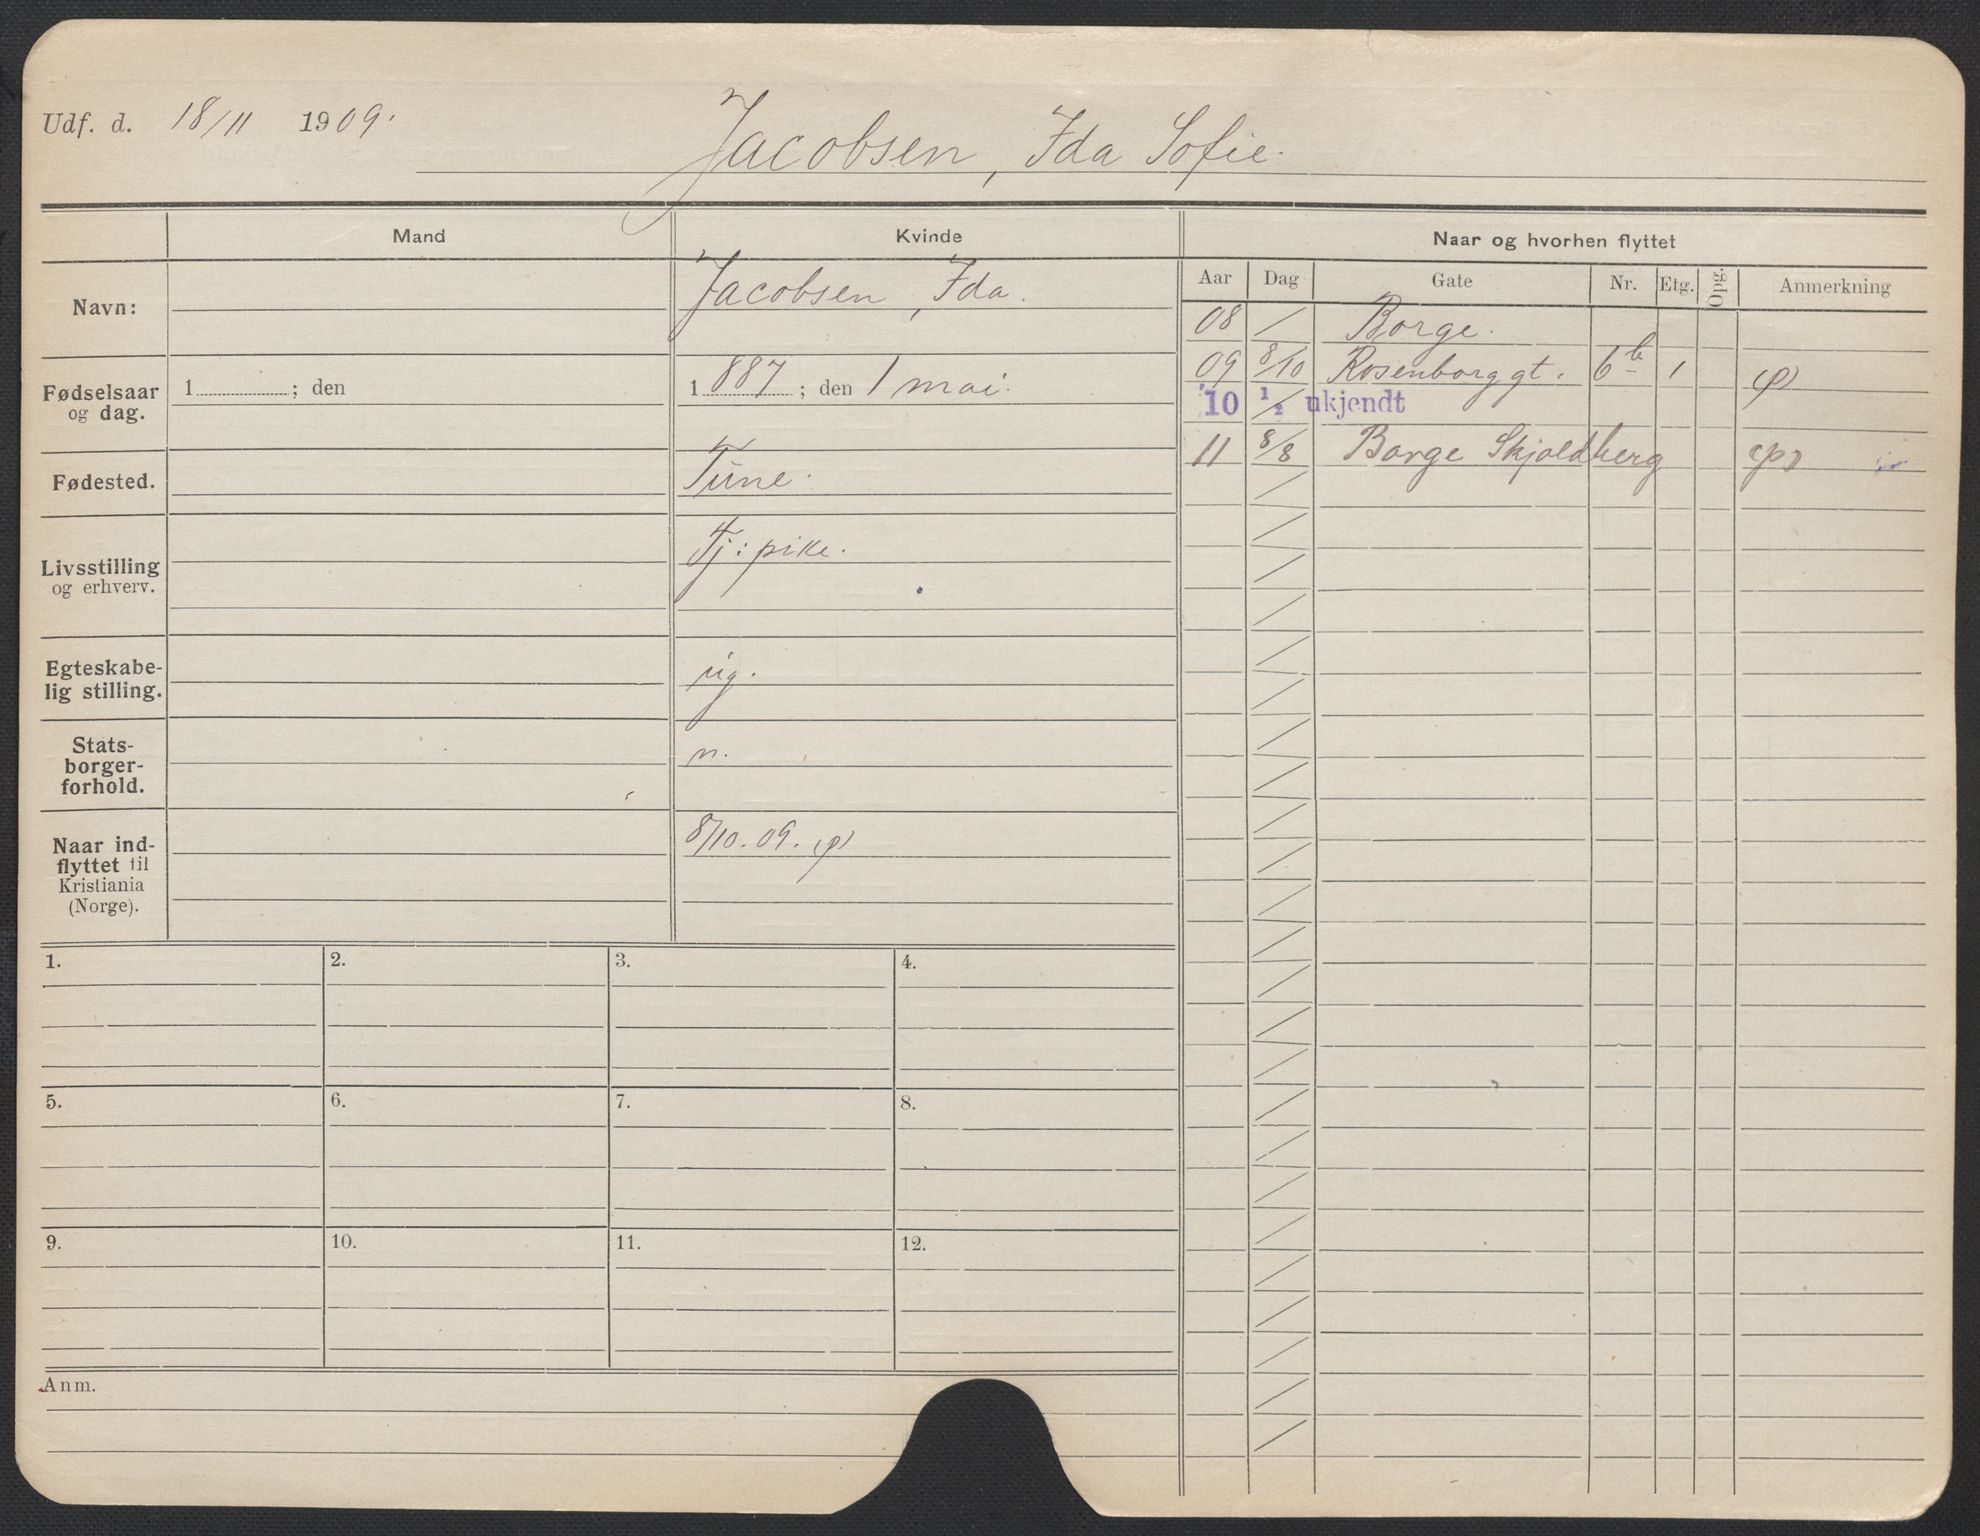 Udf. d. 18/11 1909.
Jacobsen, Ida Sofie.
Mand
Kvinde
Naar og hvorhen flyttet
Aar Dag Gate Nr. Etg. Opg. Anmerkning
Navn:
Jacobsen, Ida.
Fødselsaar
og dag.
1 ; den
1 887 ; den 1 mai.
Fødested.
Tune.
Livsstilling
og erhverv.
Tj: pike.
Egteskabe-
lig stilling.
ug.
Stats-
borger-
forhold.
n.
Naar ind-
flyttet til
Kristiania
(Norge).
8/10. 09. (p)
08 / Borge.
09 8/10 Rosenborggt. 6b 1 (p)
'10 1/2 ukjendt
11 8/8 Borge Skjoldberg (p)
1. 2. 3. 4.
5. 6. 7. 8.
9. 10. 11. 12.
Anm.